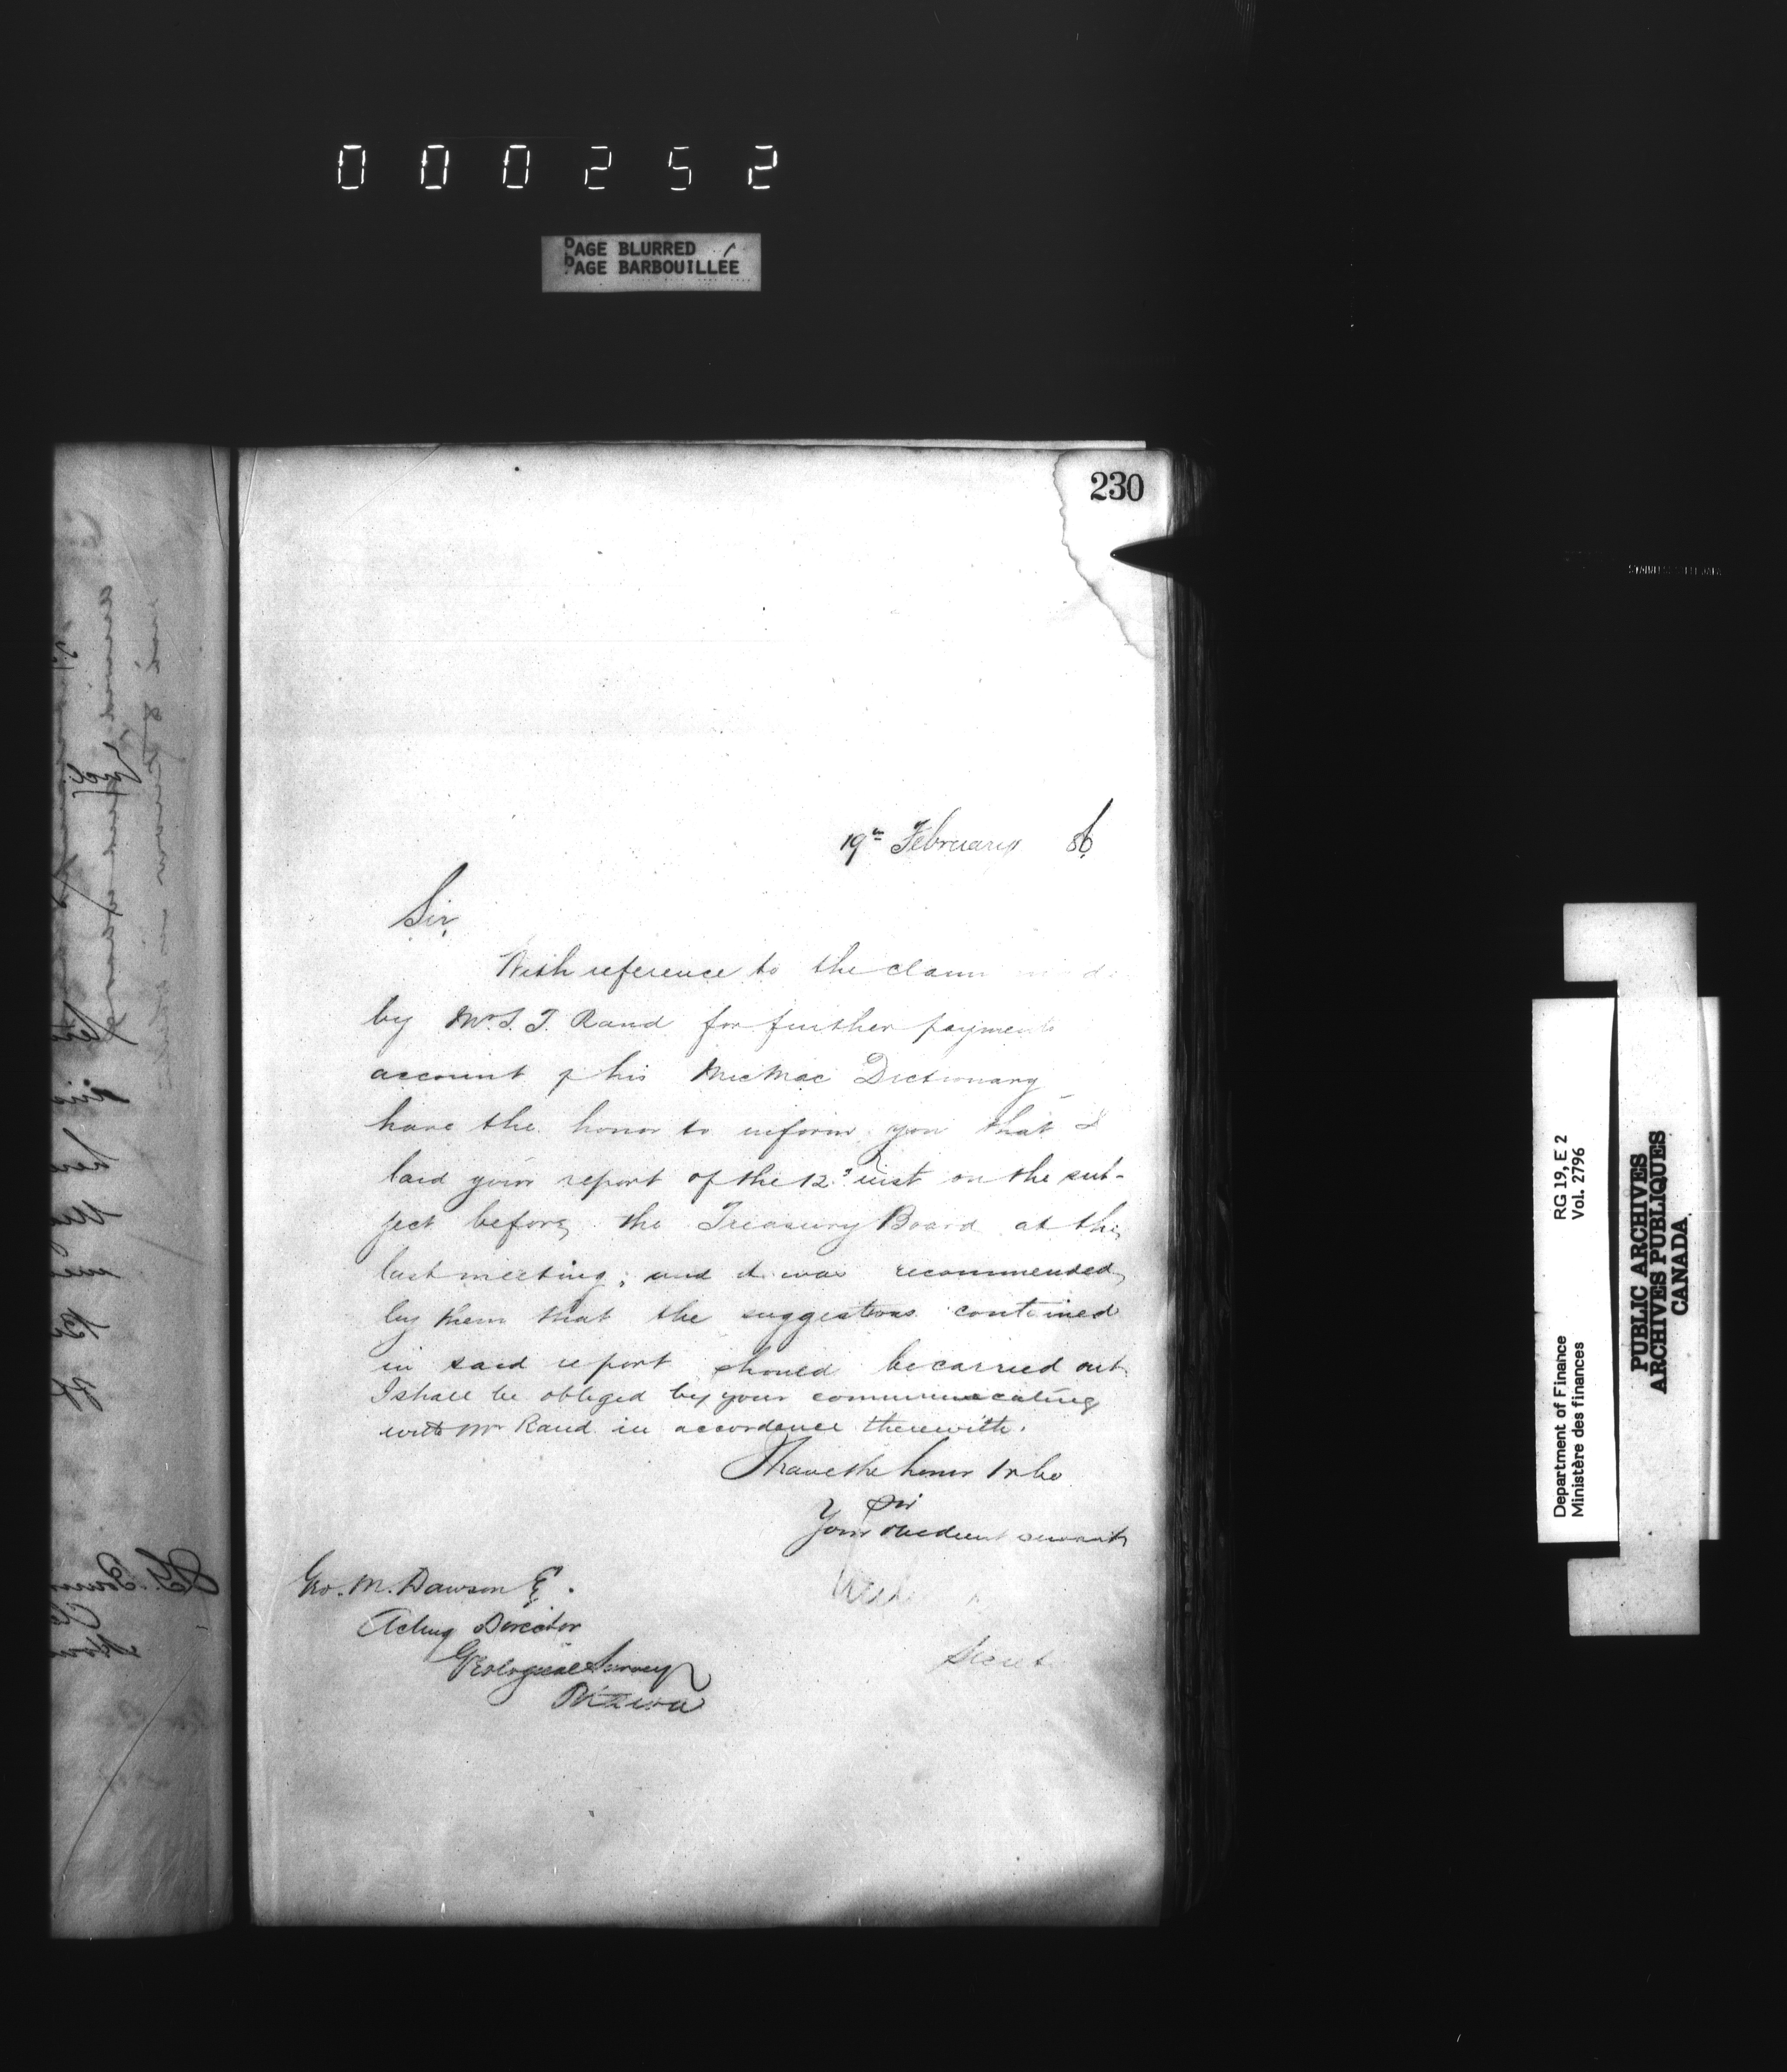 000252
PAGE BLURRED
PAGE BARBOUILLÉE
230
19th February 86
Sir,
With reference to the claim
by Mr S. T. Rand for further payment
account of his MicMac Dictionary
have the honor to inform you that I
laid your report of the 12th inst on the sub-
ject before the Treasury Board at the
last meeting; and it was recommended
by them that the suggestions contained
in said report should be carried out.
I shall be obliged by your communicating
with Mr Rand in accordance therewith.
I have the honor to be
Sir
Your obedient servant
Geo. M. Dawson E
Acting Director
Geological Survey
Ottawa
Secret
Department of Finance RG 19, E 2
Ministère des finances Vol. 2796
PUBLIC ARCHIVES
ARCHIVES PUBLIQUES
CANADA